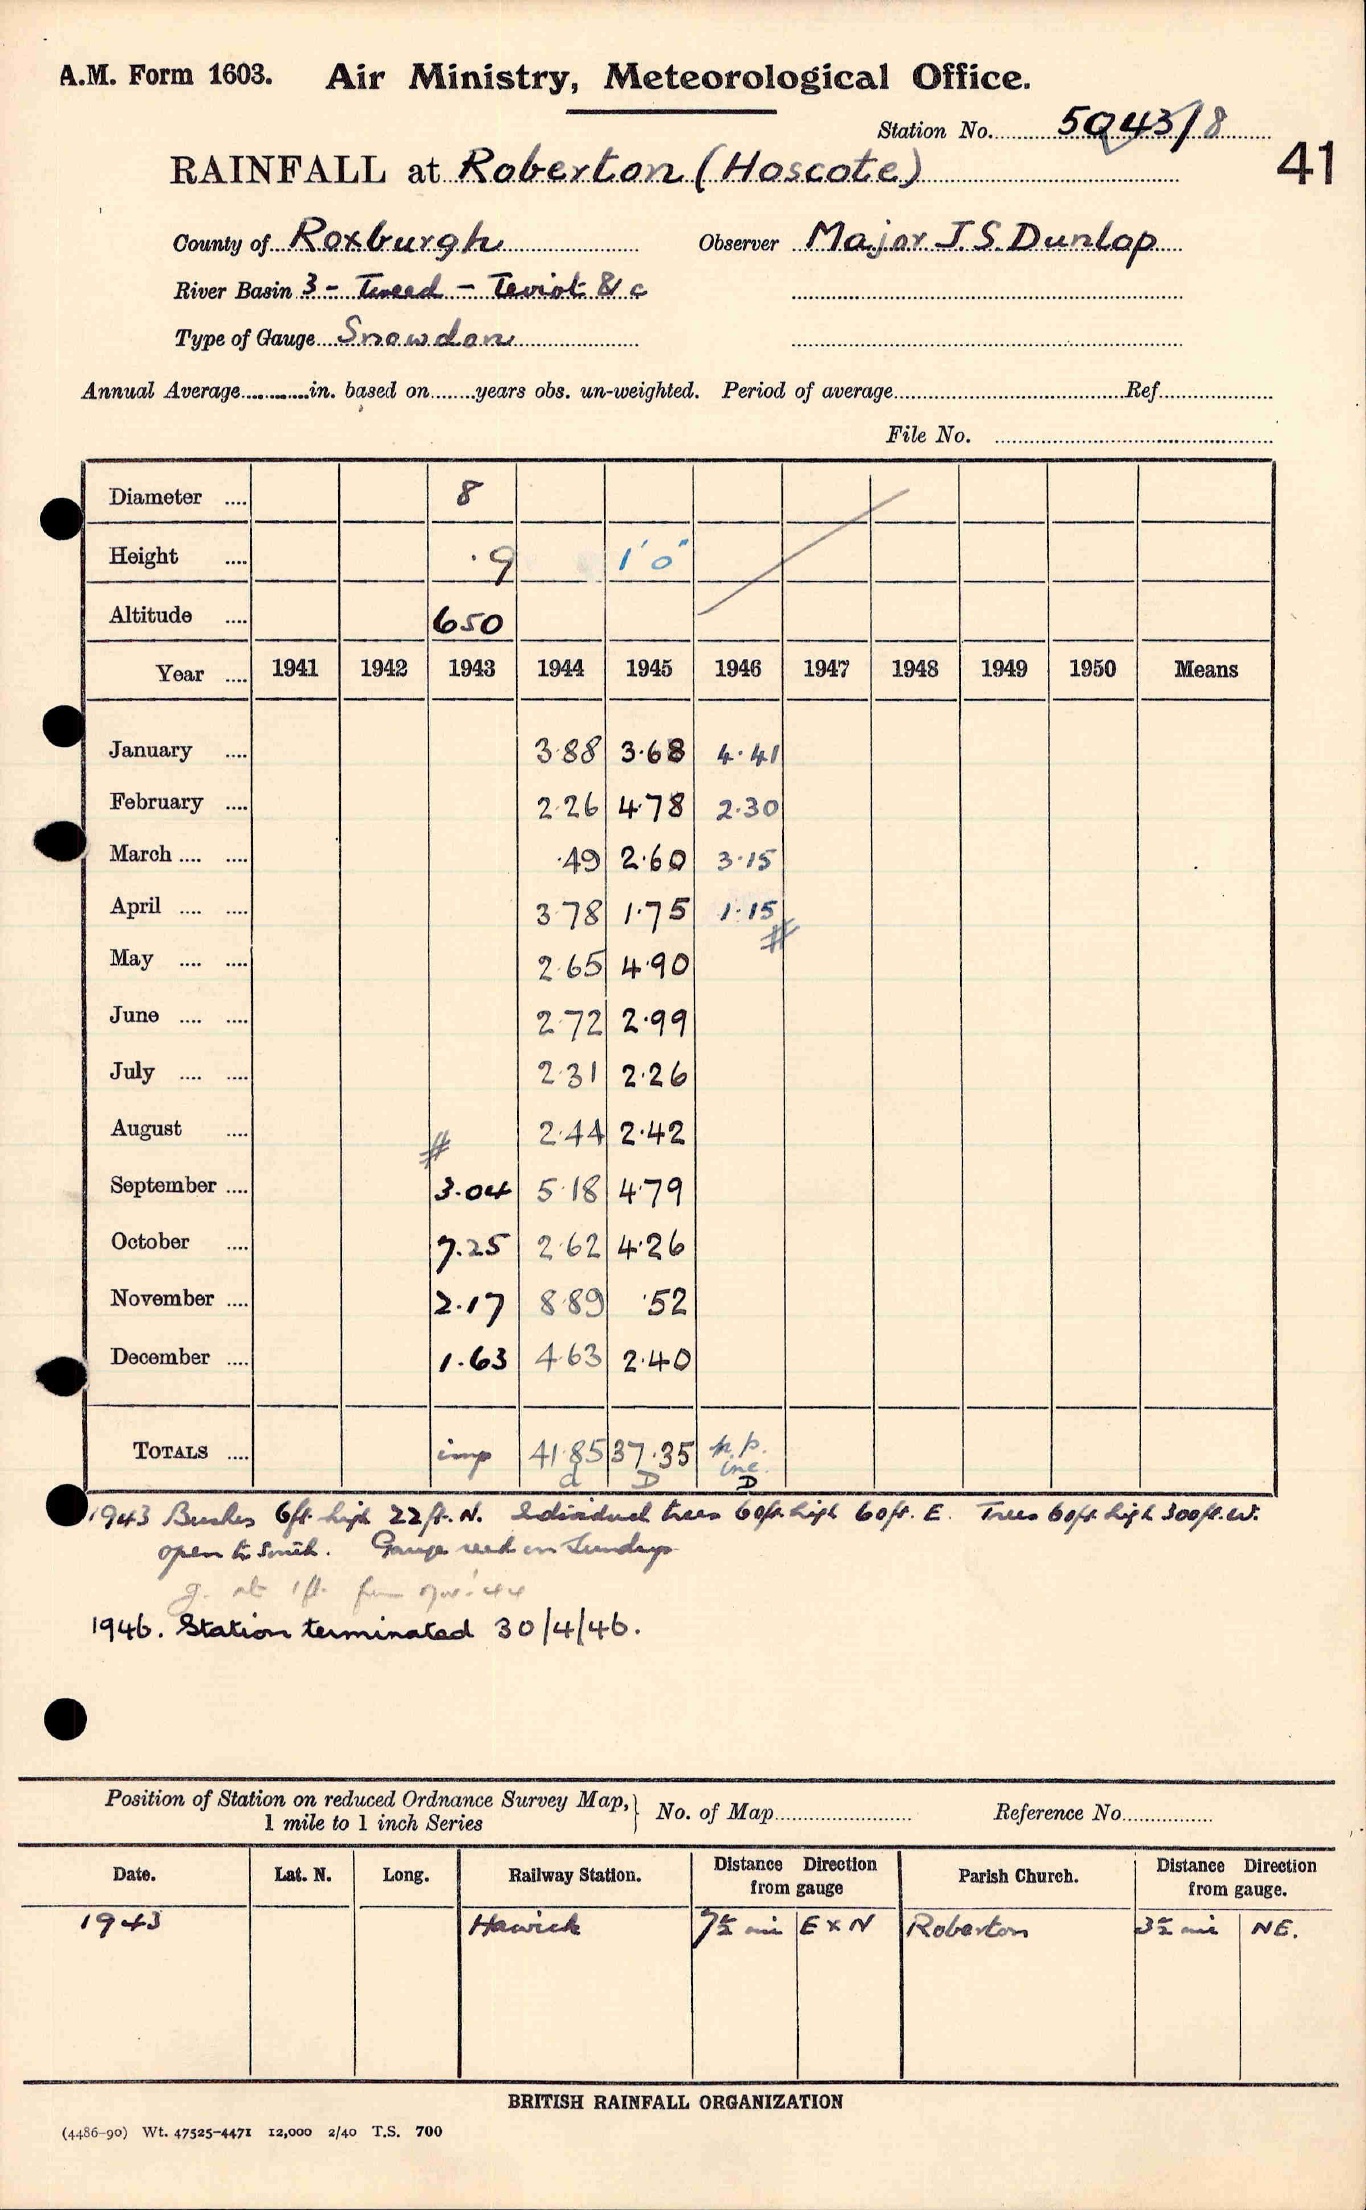 A.M. Form 1603. Air Ministry, Meteorological Office.
Station No. 5043/8
41
RAINFALL at Roberton (Hoscote)
County of Roxburgh Observer Major J.S. Dunlop
River Basin 3 - Tweed - Teviot &c
Type of Gauge Snowdon
Annual Average in. based on years obs. un-weighted. Period of average Ref.
File No.
Diameter 8
Height .9 1'0"
Altitude 650
Year 1941 1942 1943 1944 1945 1946 1947 1948 1949 1950 Means
January 3.88 3.68 4.41
February 2.26 4.78 2.30
March .49 2.60 3.15
April 3.78 1.75 1.15
May 2.65 4.90
June 2.72 2.99
July 2.31 2.26
August 2.44 2.42
September 3.04 5.18 4.79
October 7.25 2.62 4.26
November 2.17 8.89 .52
December 1.63 4.63 2.40
TOTALS imp 41.85 37.35 n.p. inc.
d D D
1943 Bushes 6ft. high 22ft. N. Individual trees 60ft. high 60ft. E. Trees 60ft. high 300ft. W.
open to South. Gauge read on Sundays
g. at 1ft. from Nov. '44
1946. Station terminated 30/4/46.
Position of Station on reduced Ordnance Survey Map,
1 mile to 1 inch Series
No. of Map Reference No.
Date. Lat. N. Long. Railway Station. Distance Direction from gauge Parish Church. Distance Direction from gauge.
1943 Hawick 7½ mi E x N Roberton 3½ mi NE.
BRITISH RAINFALL ORGANIZATION
(4486-90) Wt. 47525-4471 12,000 2/40 T.S. 700